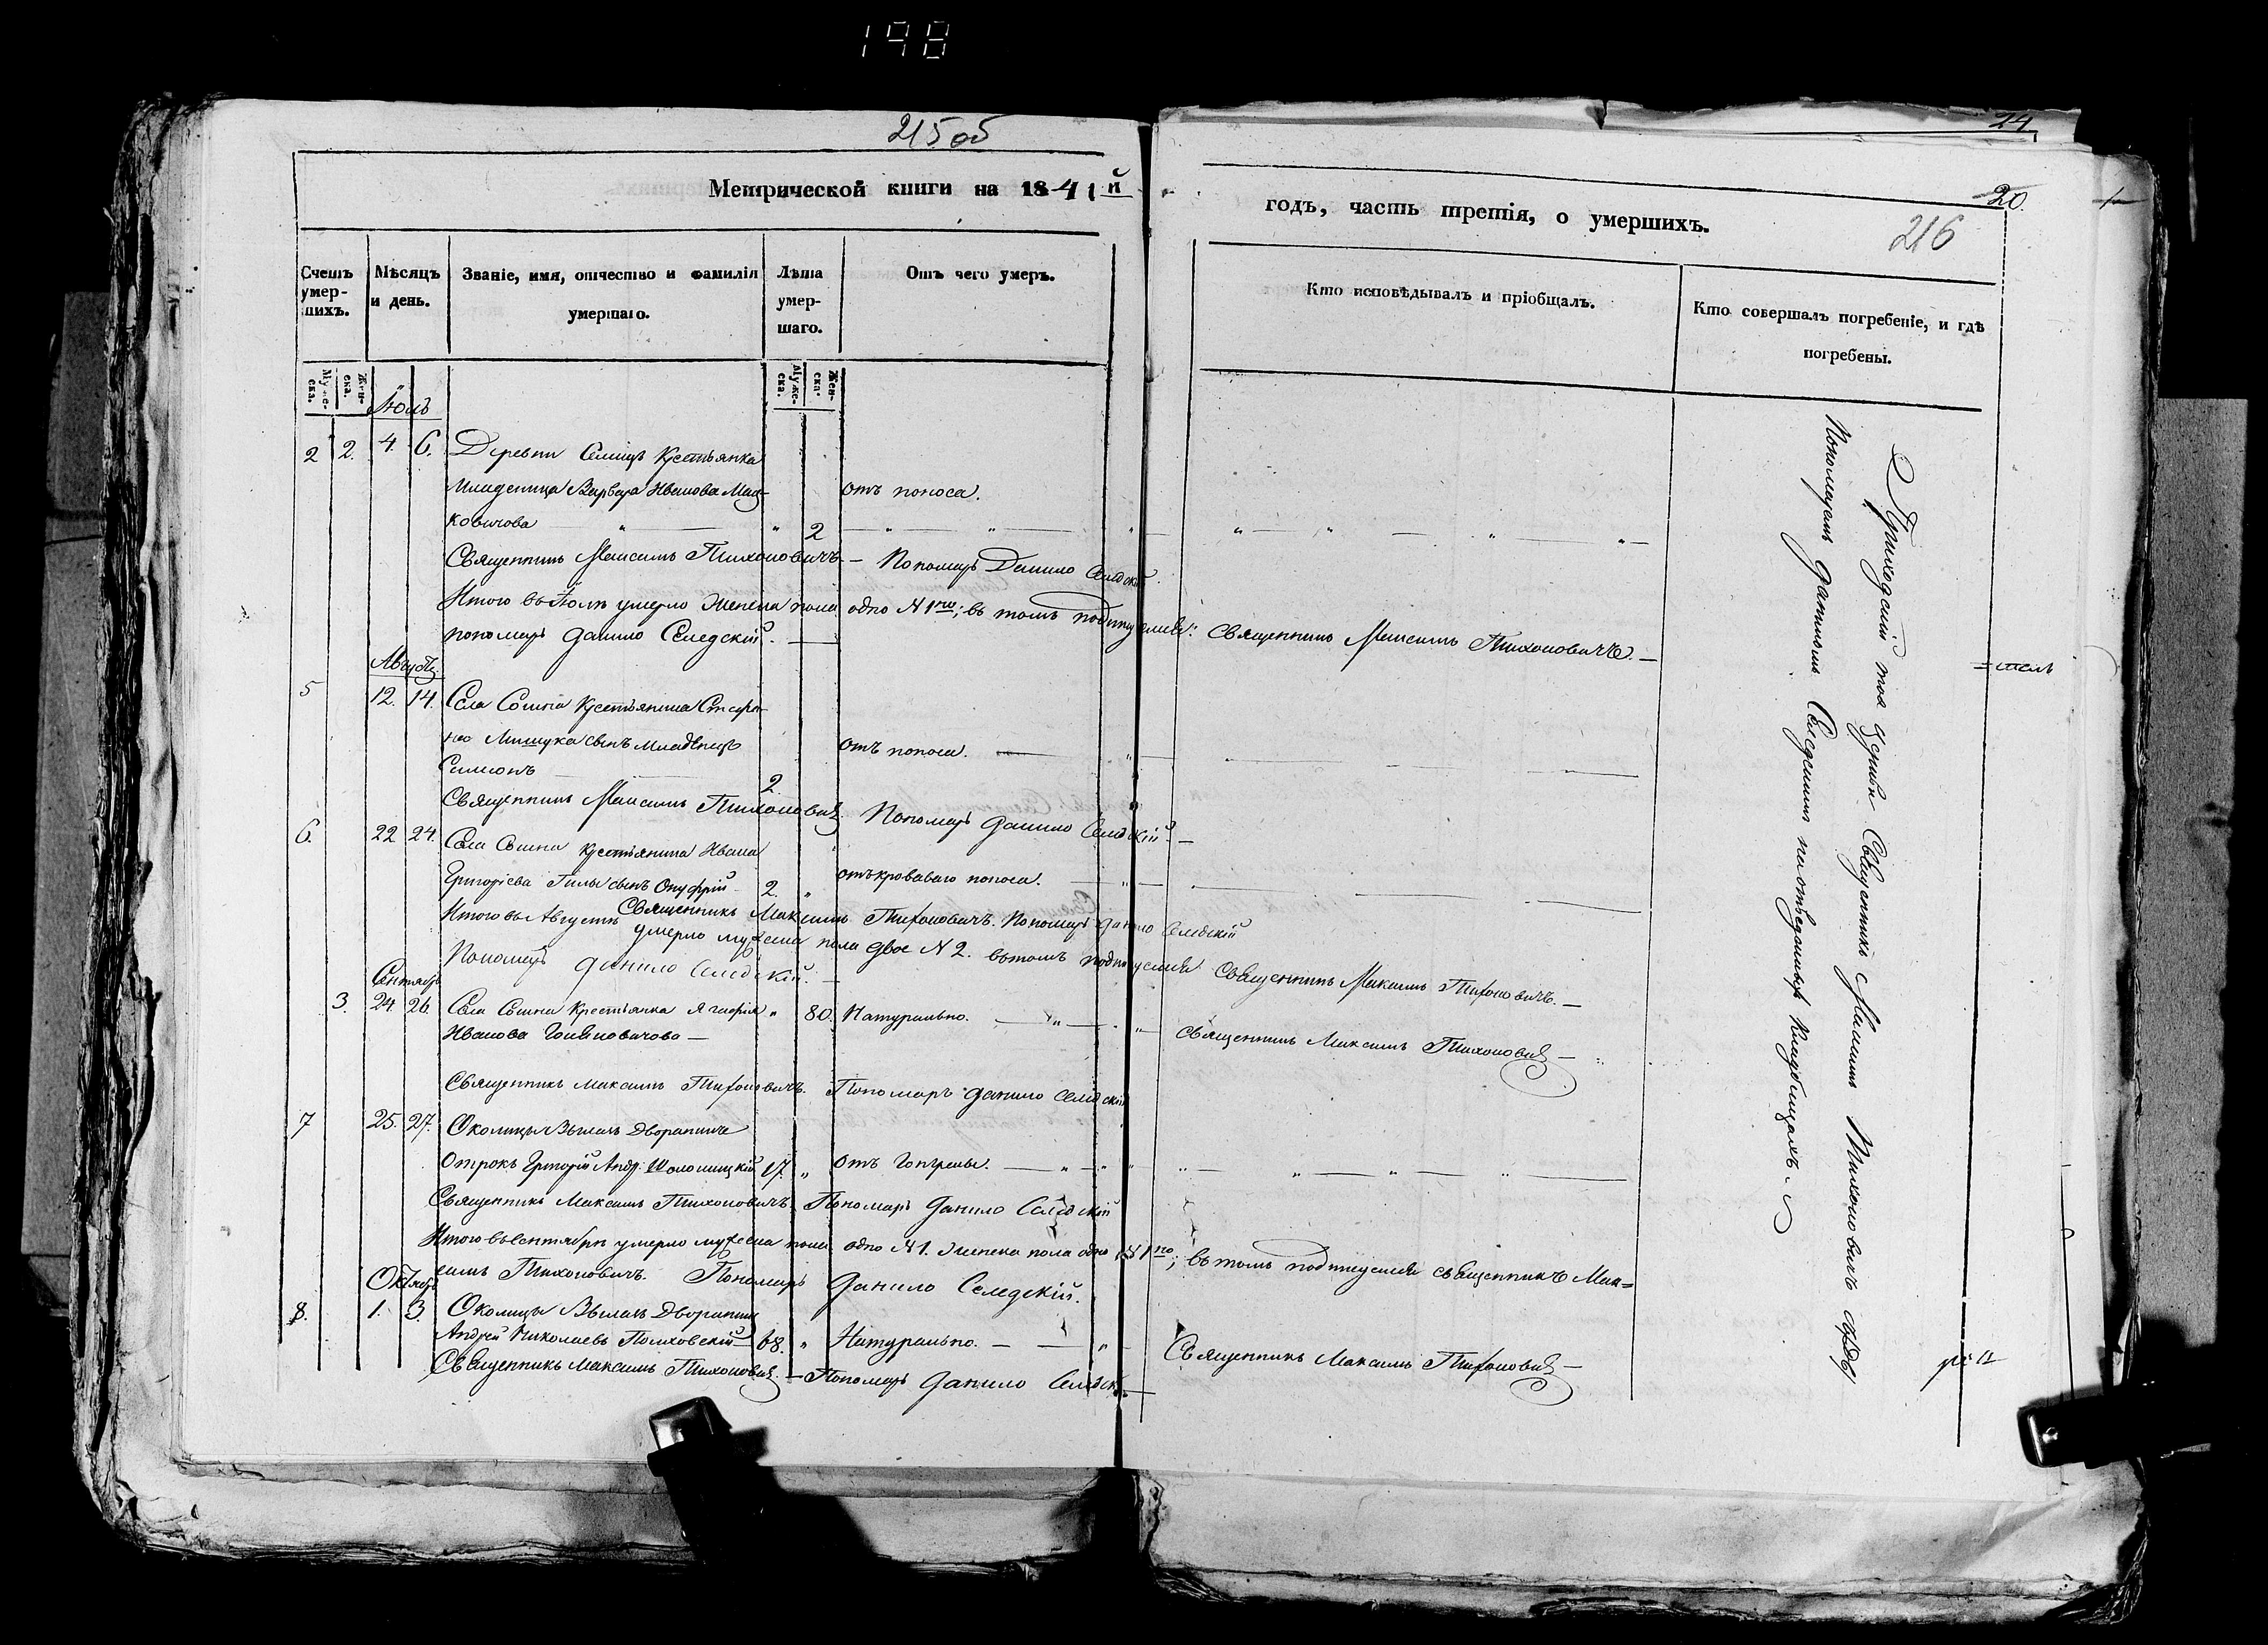 198
215 об
Метрической книги на 1841й
годъ, часть третія, о умершихъ.
24
20.
216
Счетъ умер-шихъ.
Мѣсяцъ и день.
Званіе, имя, отчество и фамилія умершаго.
Лѣта умер-шаго.
Отъ чего умеръ.
Кто исповѣдывалъ и пріобщалъ.
Кто совершалъ погребеніе, и гдѣ погребены.
Муже-ска. Жен-ска.
Муже-ска. Жен-ска.
Іюль
2 2. 4. 6. Деревни Селицъ Крестьянка
Младеница Варвара Иванова Мац- отъ поноса.
ковичова 2
Священникъ Максимъ Тихоновичъ. — Пономарь Данило Селедскій.
Итого въ Іюлѣ умерло женска пола одно N 1но; въ томъ подписуемся: Священникъ Максимъ Тихоновичъ. —
пономарь Данило Селедскій. —
Августъ
5 12. 14. Села Сошна Крестьянина
Мишука сынъ младенецъ отъ поноса. —
Симеонъ 2.
Священникъ Максимъ Тихоновичъ. Пономарь Данило Селедскій. —
6. 22 24. Села Сошна Крестьянина Ивана
Григорієва Гилы сынъ Онуфрій 2. „ отъ кроваваго поноса.
Священникъ Максимъ Тихоновичъ. Пономарь Данило Селедскій
Итого въ Августѣ умерло мужеска пола двое N 2. въ томъ подписуемся Священникъ Максимъ Тихоновичъ. —
Пономарь Данило Селедскій. —
Сентябрь
3. 24. 26. Села Сошна Крестьянка Агафія „ 80. Натурально. — Священникъ Максимъ Тихоновичъ —
Иванова —
Священникъ Максимъ Тихоновичъ. Пономарь Данило Селедскій
7 25. 27. Околицы Вылазъ Дворянинъ
Отрокъ Григорій Андр: Шоломицкій 17. „ отъ горячки. —
Священникъ Максимъ Тихоновичъ. Пономарь Данило Селедскій
Итого въ Сентябрѣ умерло мужеска пола одно N 1. женска пола одно N 1но; въ томъ подписуемся священникъ Мак=
симъ Тихоновичъ. Пономарь Данило Селедскій.
Октябрь
8. 1. 3. Околицы Вылазъ Дворянинъ
Андрей Николаевъ Полховскій — 68. „ Натурально. — Священникъ Максимъ Тихоновичъ —
Священникъ Максимъ Тихоновичъ. — Пономарь Данило Селедск. —
Приходскій тоя церкви Священникъ Максимъ Тихоновичъ съ
Пономаремъ Даниломъ Селедскимъ на отведенныхъ Кладбищахъ.